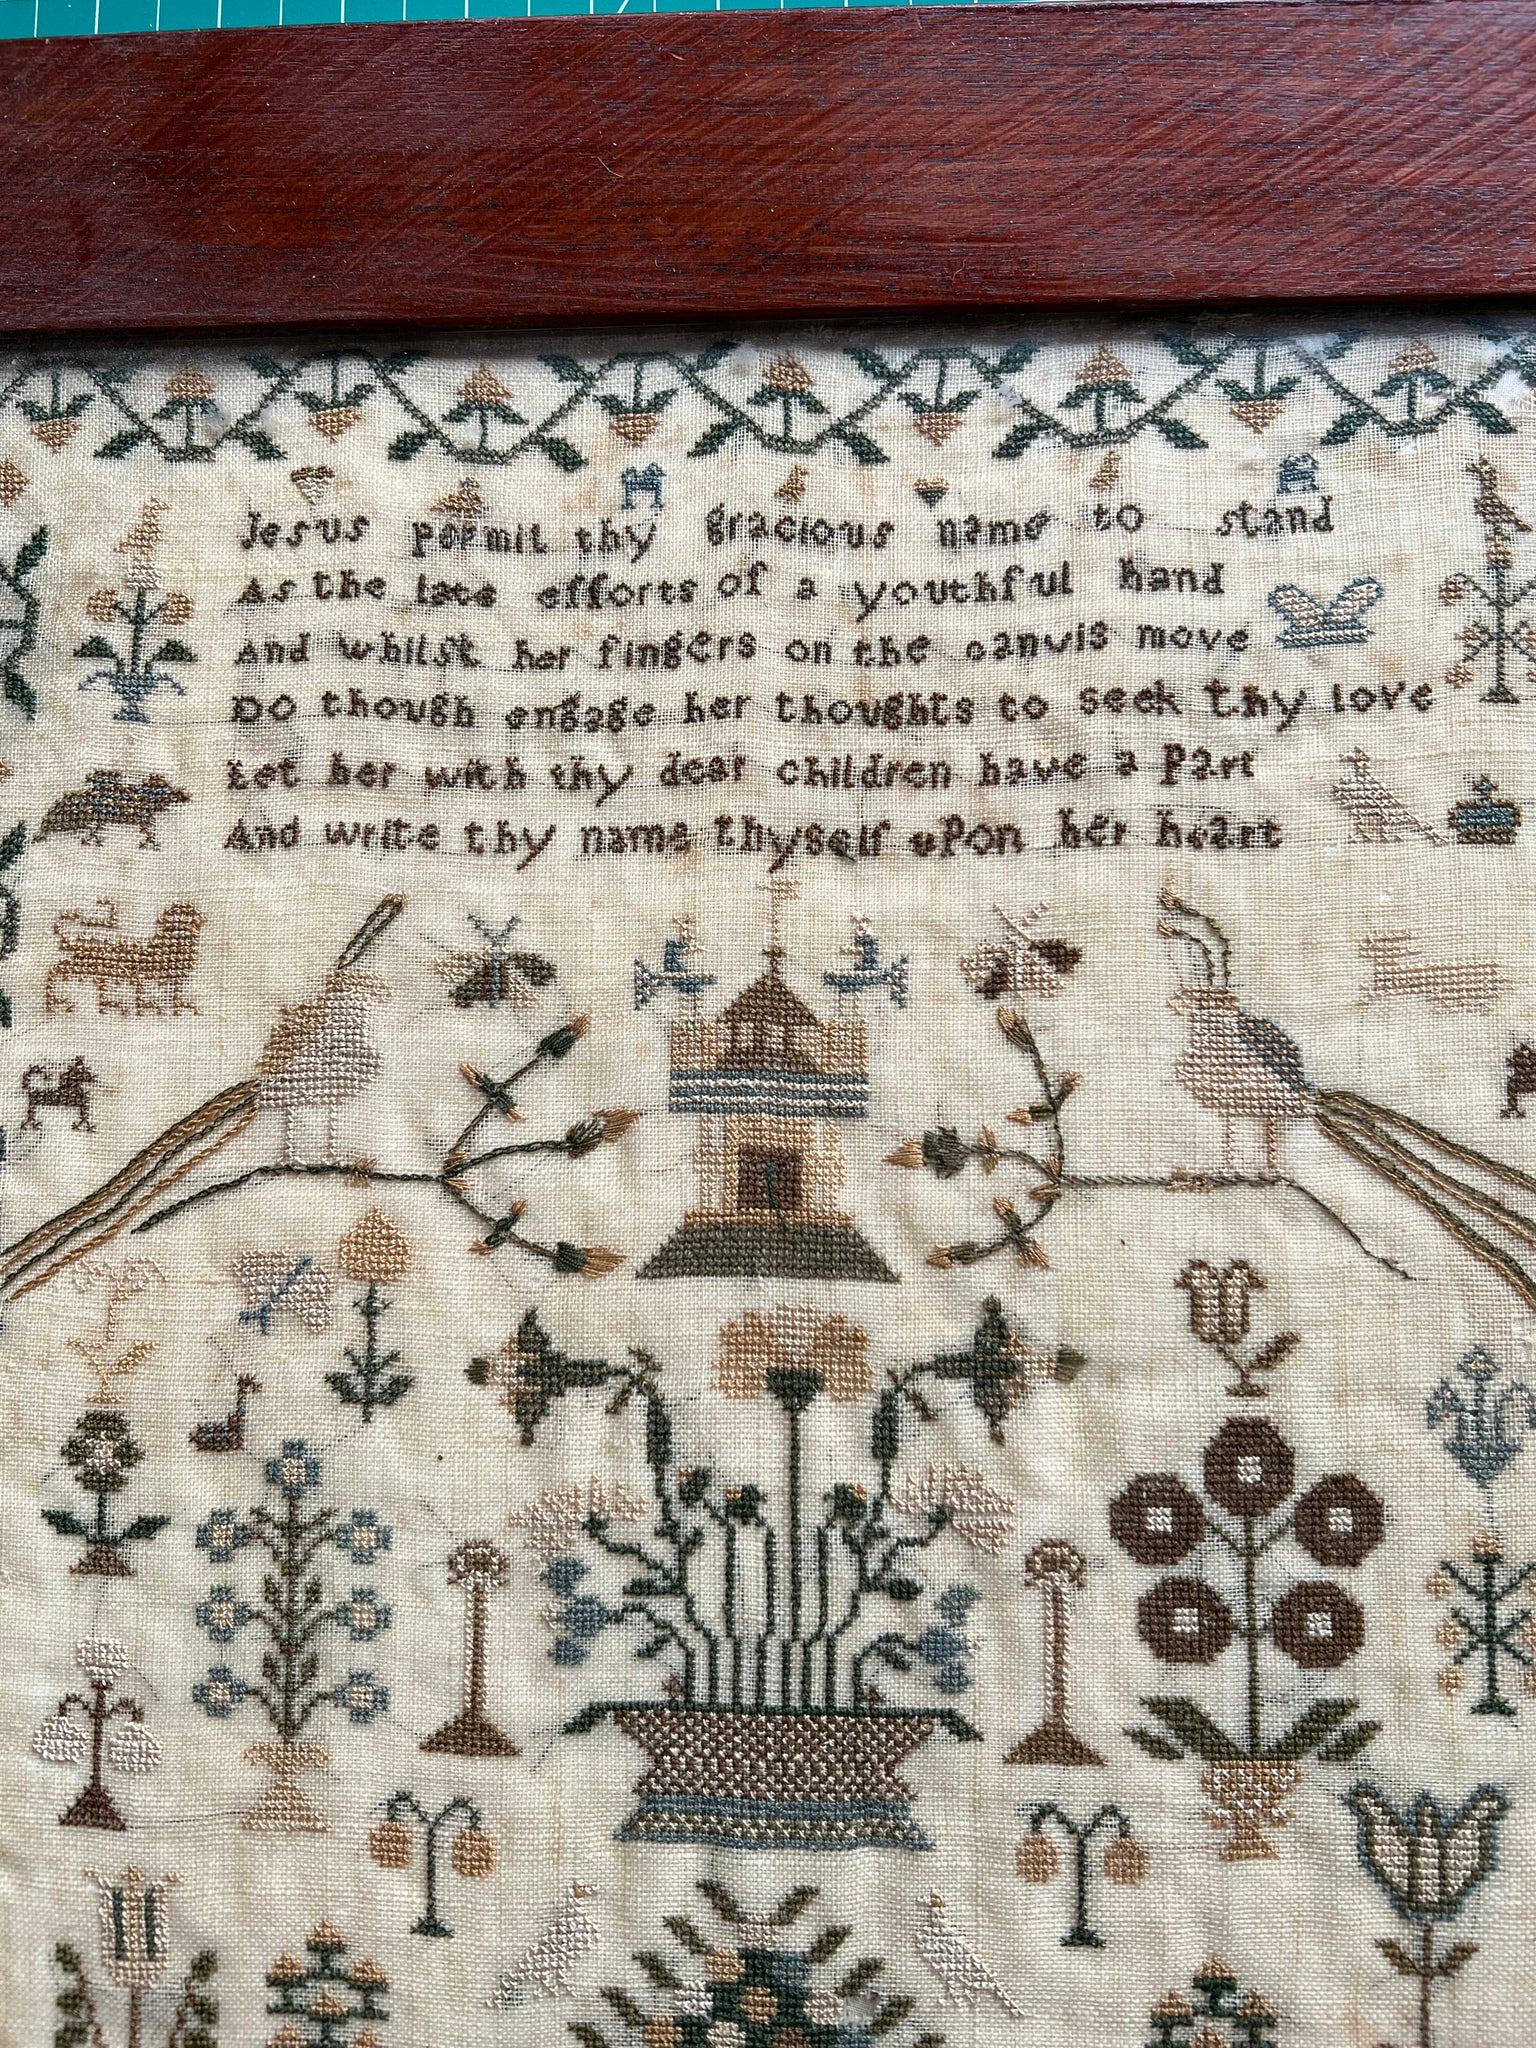 Jesus permit thy gracious name to stand
As the late efforts of a youthful hand
And whilst her fingers on the canvis move
Do though engage her thoughts to seek thy love
Let her with thy dear children have a Part
And write thy name thyself uPon her heart